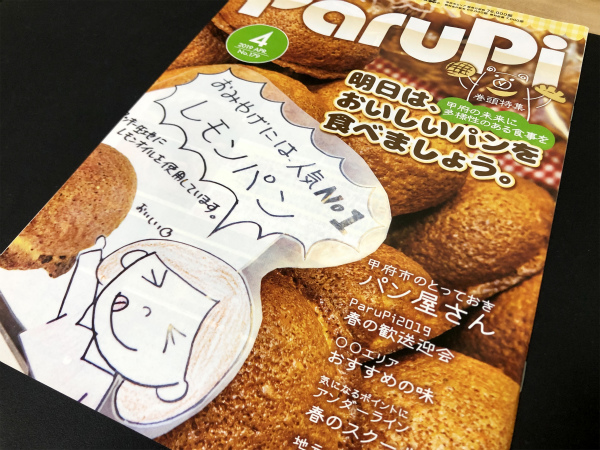 ParuPi
4
2019 APR.
No.179
巻頭特集
甲府の未来に
多様性のある食事を
明日は、
おいしいパンを
食べましょう。
おみやげには、人気No1
レモンパン
レモンオイルを使用しています。
おいしい
甲府市のとっておき
パン屋さん
ParuPi2019
春の歓送迎会
○○エリア
おすすめの味
気になるポイントに
アンダーライン
春のスクー
地元